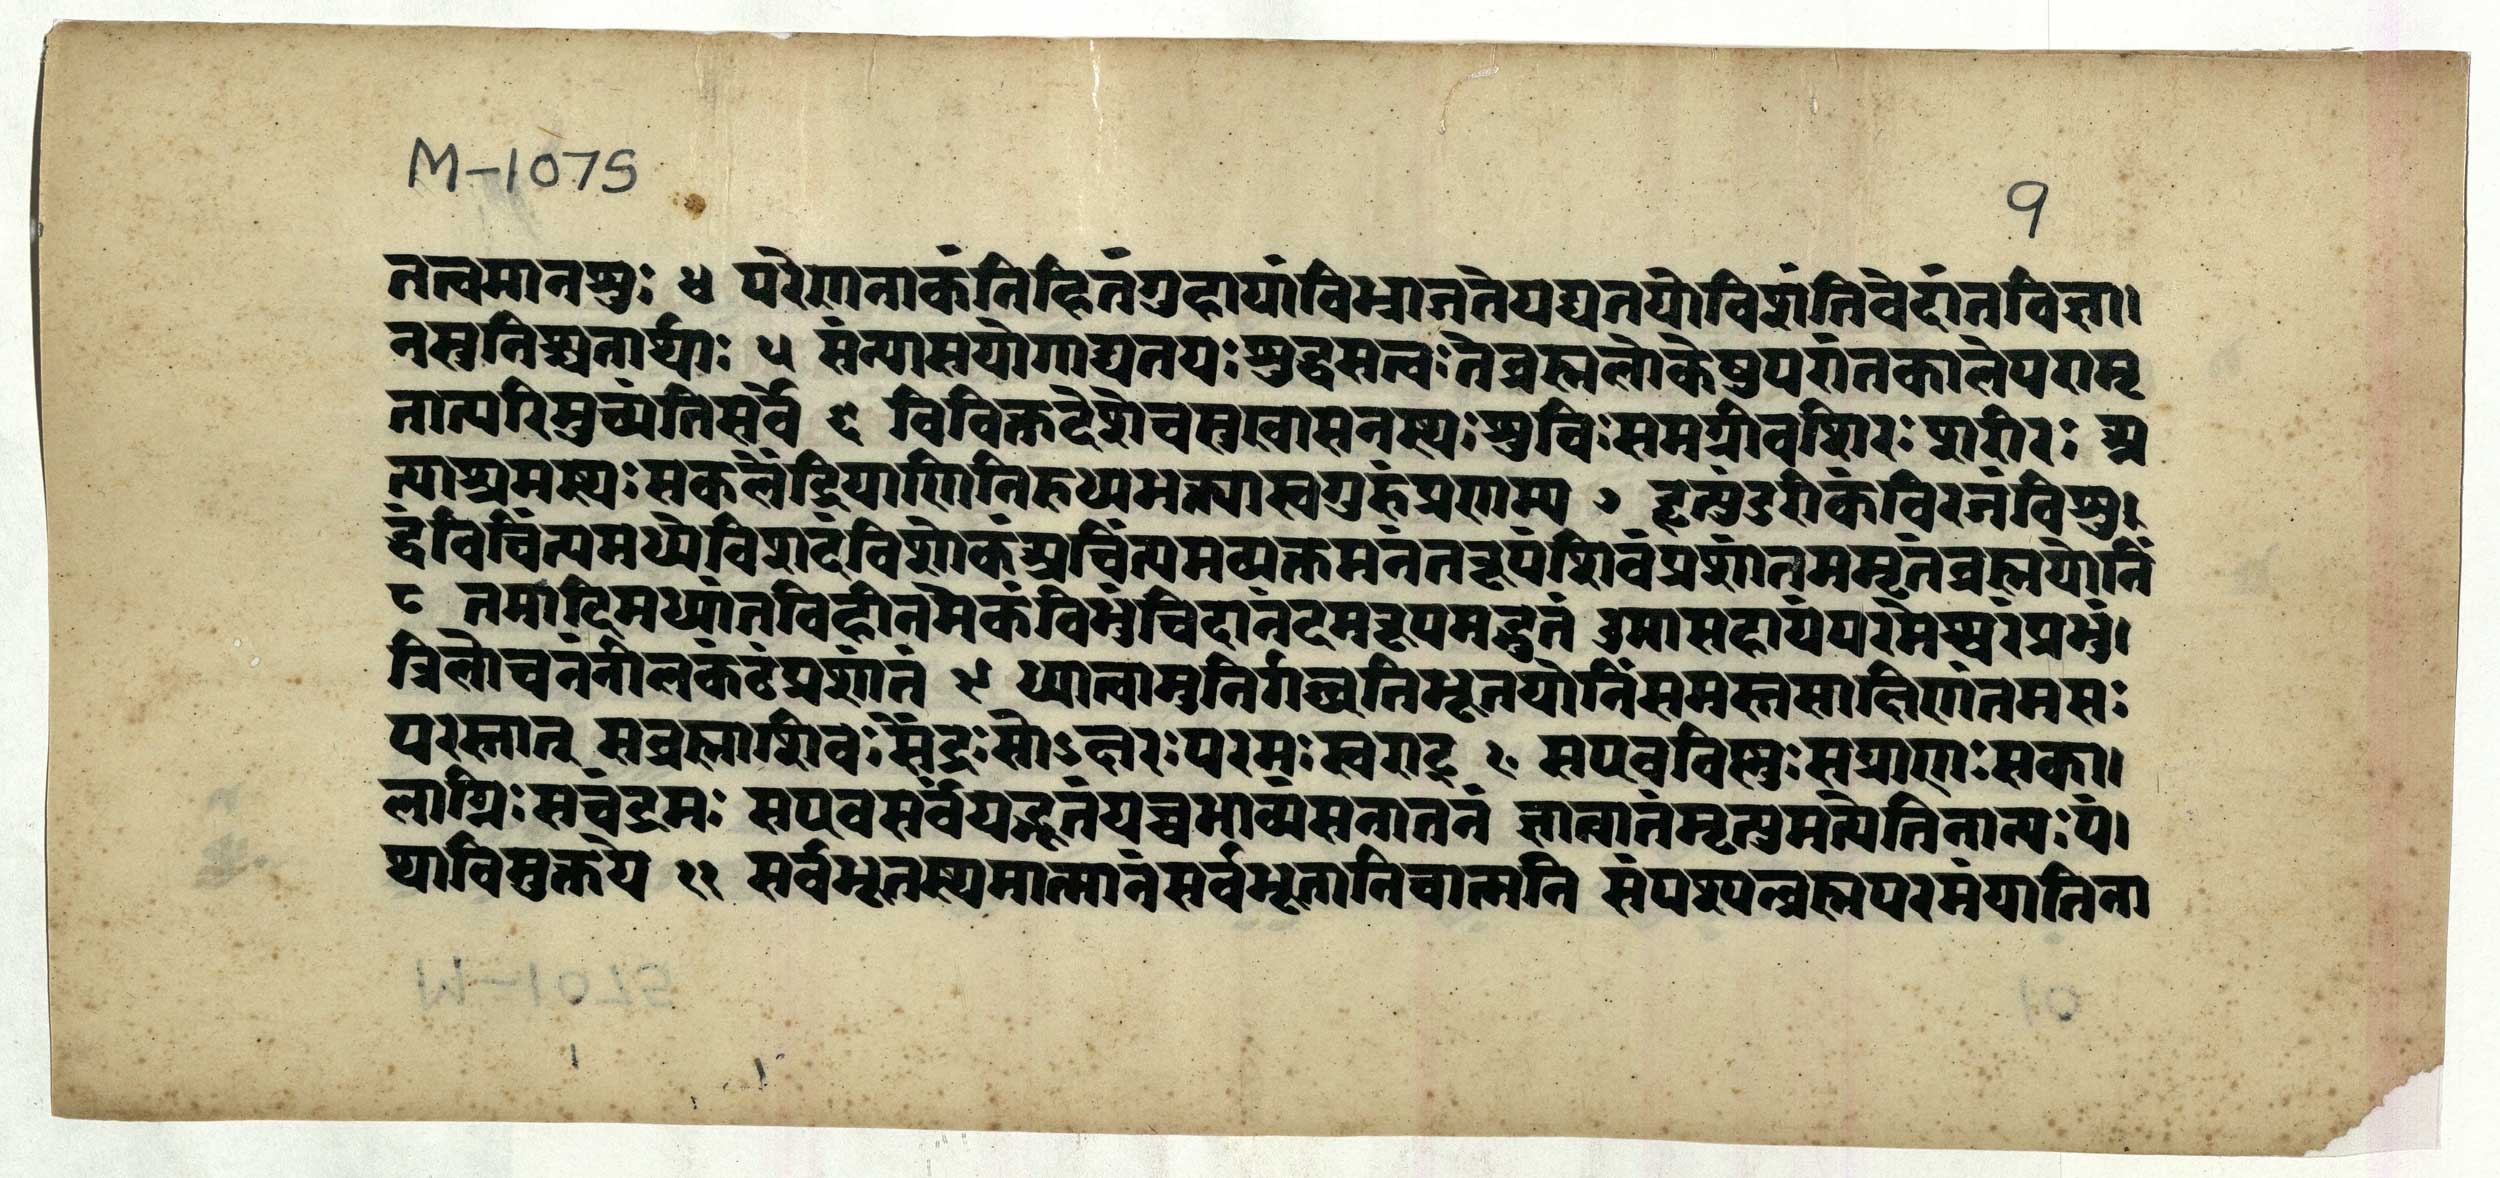 M-1075
9
तत्वमानशुः ४ परेणनाकंनिहितंगुहायांविभ्राजतेयद्यतयोविशंतिवेदांतविज्ञा।
नसुनिश्चतार्थाः ५ संन्यासयोगाद्यतयःशुद्धसत्वःतेब्रह्मलोकेषुपरांतकालेपरामृ
तात्परिमुच्यंतिसर्वे ६ विविक्तदेशेचसुखासनस्थःशुचिःसमग्रीवशिरःशरीरः अ
त्याश्रमस्थःसकलेंद्रियाणिनिरुध्यभक्त्यास्वगुरुंप्रणम्य ७ हृत्पुंडरीकंविरजंविशु।
द्धंविचिंत्यमध्येविशदंविशोकंअचिंत्यमव्यक्तमनंतरूपंशिवंप्रशांतममृतंब्रह्मयोनिं
८ तमादिमध्यांतविहीनमेकंविभुंचिदानंदमरूपमद्भुतं उमासहायंपरमेश्वरंप्रभुं।
त्रिलोचनंनीलकंठंप्रशांतं ९ ध्यात्वामुनिर्गच्छतिभूतयोनिंसमस्तसाक्षिणंतमसः
परस्तात् सब्रह्माशिवःसेंद्रःसोऽक्षरःपरमःस्वराट् १० सएवविष्णुःसप्राणःसका।
लाग्निःसचंद्रमः सएवसर्वंयद्भूतंयच्चभाव्यंसनातनं ज्ञात्वातंमृत्युमत्येतिनान्यःपं।
थाविमुक्तये ११ सर्वभूतस्थमात्मानंसर्वभूतानिचात्मनि संपश्यन्ब्रह्मपरमंयातिना